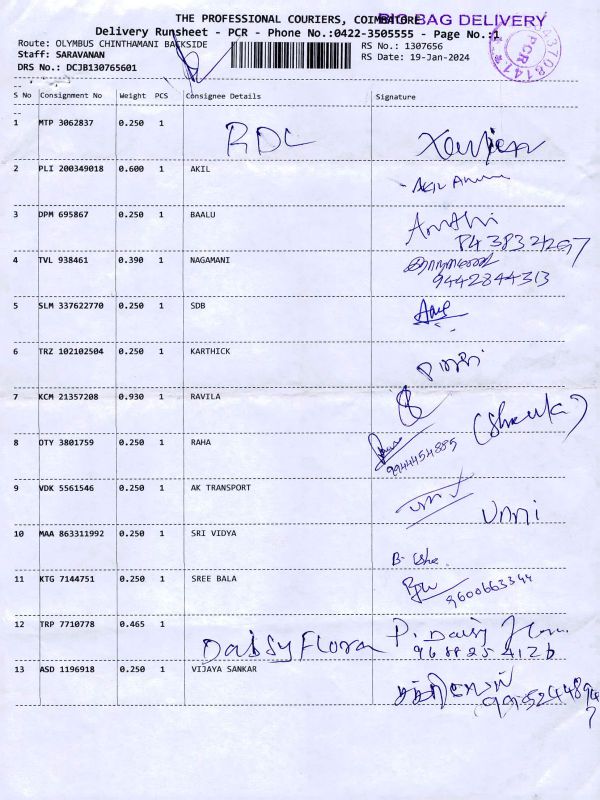 THE PROFESSIONAL COURIERS, COIMBATORE
BIG BAG DELIVERY
Delivery Runsheet - PCR - Phone No.:0422-3505555 - Page No.:1
Route: OLYMBUS CHINTHAMANI BACKSIDE
RS No.: 1307656
Staff: SARAVANAN
RS Date: 19-Jan-2024
DRS No.: DCJB130765601
PCR
S No Consignment No Weight PCS Consignee Details Signature
1 MTP 3062837 0.250 1 RDC
2 PLI 200349018 0.600 1 AKIL
3 DPM 695867 0.250 1 BAALU
4 TVL 938461 0.390 1 NAGAMANI
9442844313
5 SLM 337622770 0.250 1 SDB
6 TRZ 102102504 0.250 1 KARTHICK
7 KCM 21357208 0.930 1 RAVILA
8 DTY 3801759 0.250 1 RAHA
9944454885
9 VDK 5561546 0.250 1 AK TRANSPORT
Unni
10 MAA 863311992 0.250 1 SRI VIDYA
11 KTG 7144751 0.250 1 SREE BALA
9600663344
12 TRP 7710778 0.465 1 Daisy Flora P. Daisy
13 ASD 1196918 0.250 1 VIJAYA SANKAR